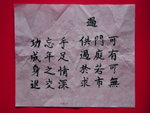 可有可無
門庭若市
供過於求
手足情深
忘年之交
功成身退